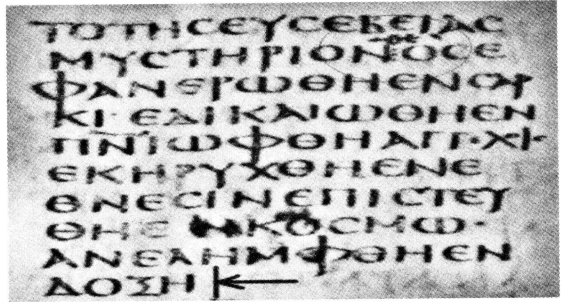 ΤΟΤΗϹΕΥϹΕΒΕΙΑϹ
ΜΥϹΤΗΡΙΟΝΟϹΕ
ΦΑΝΕΡΩΘΗΕΝϹΑΡ
ΚΙ·ΕΔΙΚΑΙΩΘΗΕΝ
ΠΝΙΩΦΘΗ
ΕΚΗΡΥΧΘΗΕΝΕ
ΘΝΕϹΙΝΕΠΙϹΤΕΥ
ΘΗΕΝΚΟϹΜΩ·
ΑΝΕΛΗΜΦΘΗΕΝ
ΔΟΞΗ